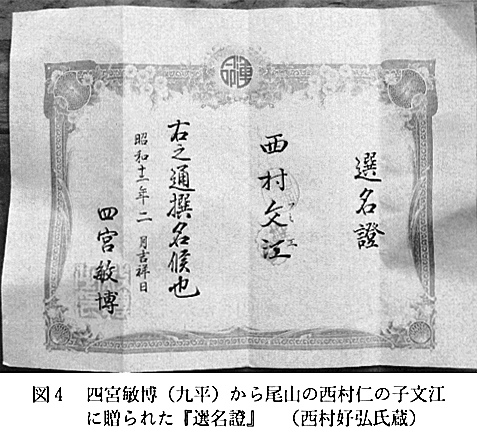 選名證
西村文江
フミエ
右之通撰名候也
昭和十一年二月吉祥日
四宮敏博
図4 四宮敏博（九平）から尾山の西村仁の子文江
に贈られた『選名證』 （西村好弘氏蔵）